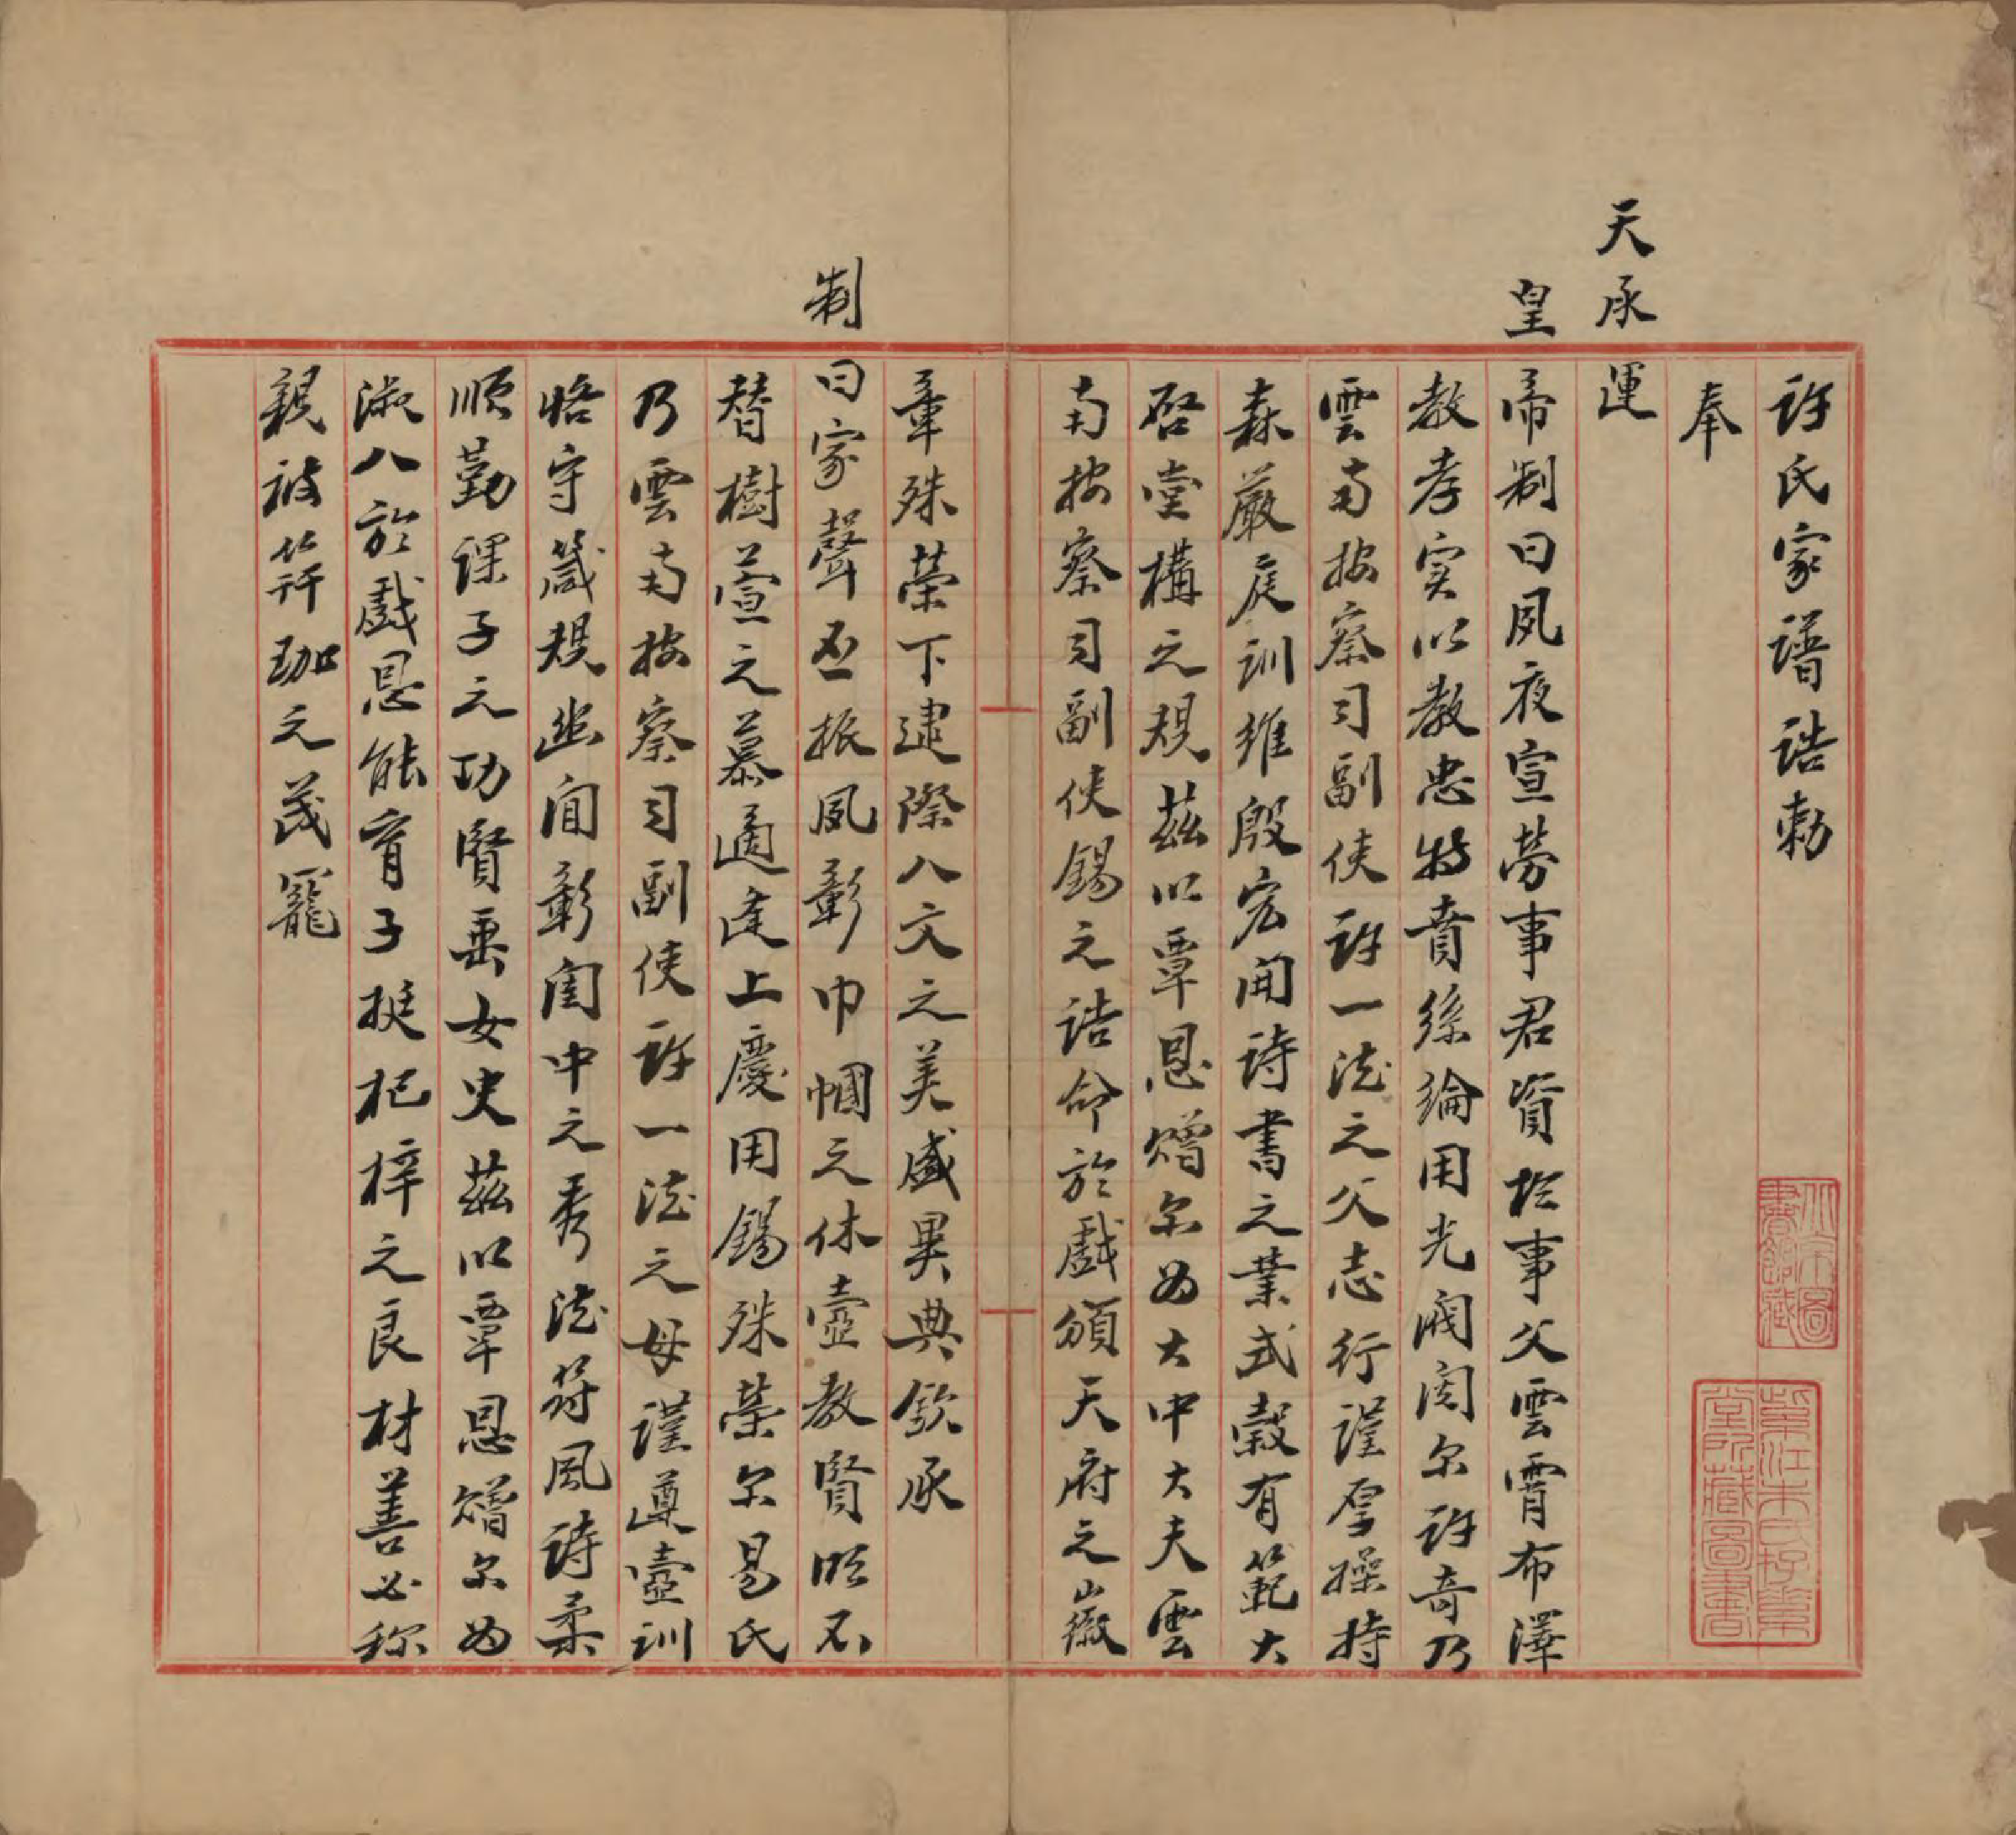 許氏家譜誥勅
奉
天承運
皇帝制曰夙夜宣勞事君資於事父雲霄布澤
教孝实以教忠特賁絲綸用光閥閱尔許奇乃
雲南按察司副使許一德之父志行謹厚操持
森嚴庭訓維殷宏開詩書之業式穀有範大
啓堂構之規茲以覃恩贈尔為大中大夫雲
南按察司副使錫之誥命於戲頒天府之徽
章殊荣下逮際人文之美盛異典欽承
制曰家聲丕振夙彰巾幗之休壼教賢明不
替樹萱之慕適逢上慶用錫殊荣尔易氏
乃雲南按察司副使許一德之母謹遵壼訓
恪守箴規幽闺彰閨中之秀德符風詩柔
順勤課子之功賢垂女史茲以覃恩贈尔為
淑人於戲恩能育子挺杞梓之良材善必称
親被笄珈之茂寵